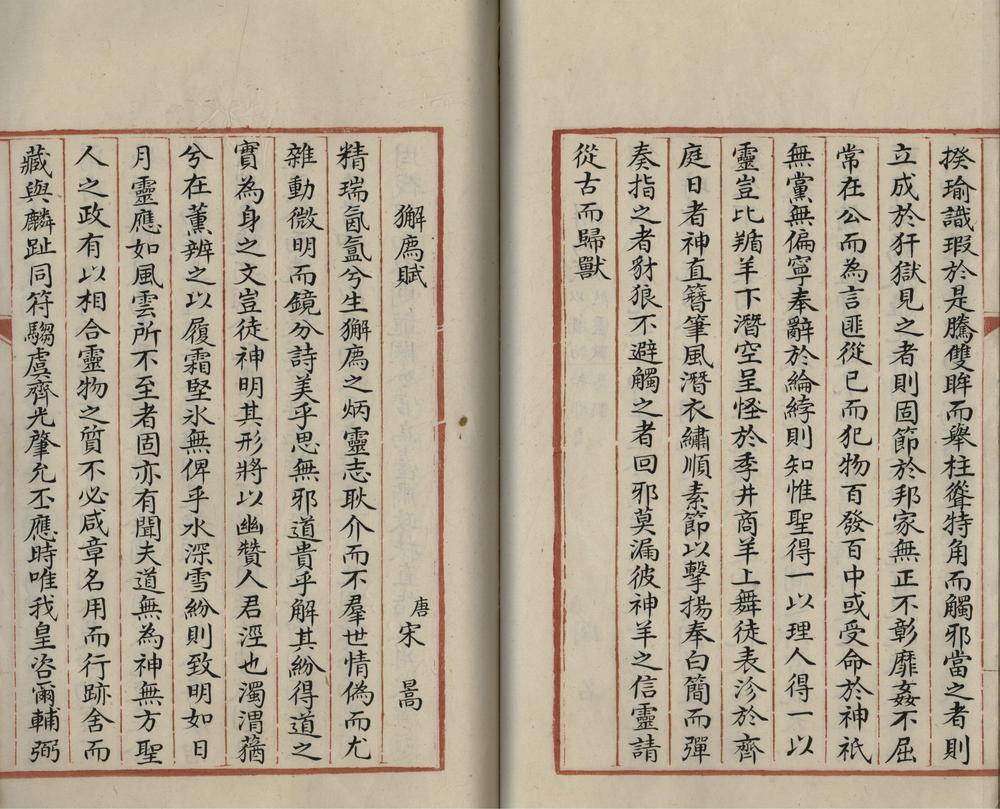 揆瑜識瑕於是騰雙眸而舉柱聳特角而觸邪當之者則
立成於犴獄見之者則固節於邦家無正不彰靡姦不屈
常在公而為言匪從已而犯物百發百中或受命於神祇
無黨無偏寧奉辭於綸綍則知惟聖得一以理人得一以
靈豈比羵羊下潛空呈怪於季井商羊上舞徒表沴於齊
庭日者神直簪筆風潛衣繡順素節以擊揚奉白簡而彈
奏指之者豺狼不避觸之者回邪莫漏彼神羊之信靈請
從古而歸獸
獬廌賦
唐宋暠
精瑞氤氳兮生獬廌之炳靈志耿介而不羣世情偽而尤
雜動微明而鏡分詩美乎思無邪道貴乎解其紛得道之
實為身之文豈徒神明其形將以幽贊人君涇也濁渭蕕
兮在薰辨之以履霜堅氷無俾乎水深雪紛則致明如日
月靈應如風雲所不至者固亦有聞夫道無為神無方聖
人之政有以相合靈物之質不必咸章名用而行跡舍而
藏與麟趾同符騶虞齊光肇允丕應時唯我皇咨爾輔弼